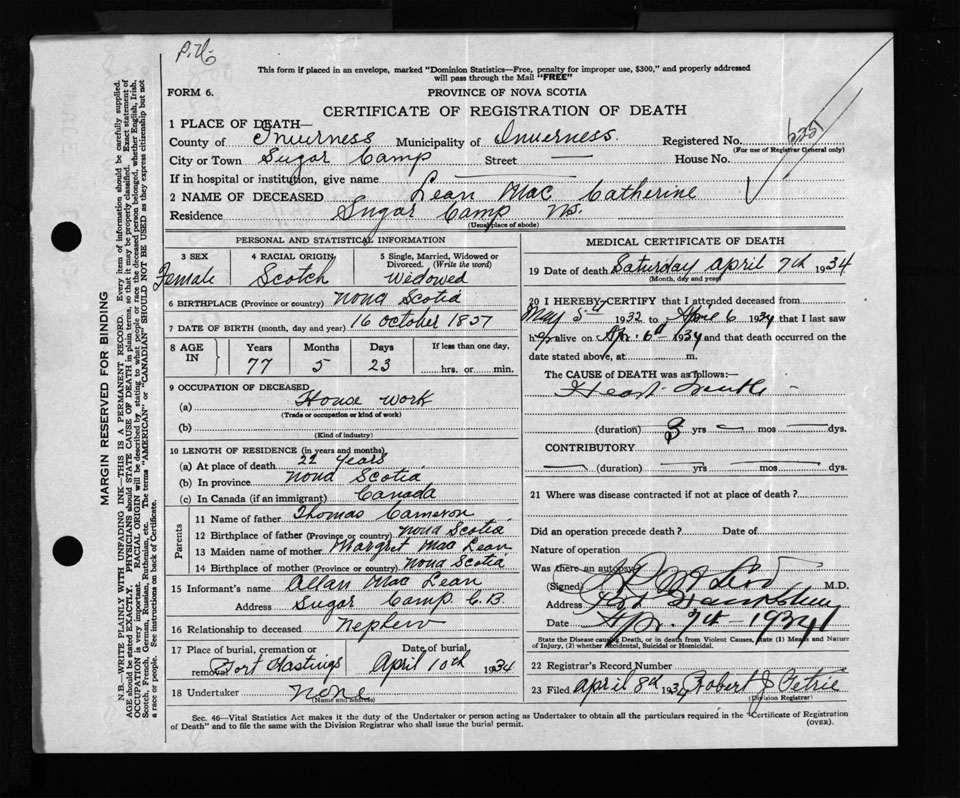 This form if placed in an envelope, marked "Dominion Statistics—Free, penalty for improper use, $300," and properly addressed
will pass through the Mail "FREE"
FORM 6.
PROVINCE OF NOVA SCOTIA
CERTIFICATE OF REGISTRATION OF DEATH
1 PLACE OF DEATH—
County of Inverness Municipality of Inverness. Registered No.
(For use of Registrar General only)
City or Town Sugar Camp Street — House No.
If in hospital or institution, give name
2 NAME OF DECEASED Lean Mac Catherine
Residence Sugar Camp N.S.
(Usual place of abode)
PERSONAL AND STATISTICAL INFORMATION
3 SEX 4 RACIAL ORIGIN 5 Single, Married, Widowed or
Divorced. (Write the word)
Female Scotch Widowed
6 BIRTHPLACE (Province or country) Nova Scotia
7 DATE OF BIRTH (month, day and year) 16 October 1857
8 AGE IN Years Months Days If less than one day,
77 5 23 hrs. or min.
9 OCCUPATION OF DECEASED
(a) House work
(Trade or occupation or kind of work)
(b)
(Kind of industry)
10 LENGTH OF RESIDENCE (in years and months)
(a) At place of death 22 years
(b) In province Nova Scotia
(c) In Canada (if an immigrant) Canada
Parents
11 Name of father Thomas Cameron
12 Birthplace of father (Province or country) Nova Scotia
13 Maiden name of mother Margret Mac Lean
14 Birthplace of mother (Province or country) Nova Scotia
15 Informant's name Allan Mac Lean
Address Sugar Camp C.B.
16 Relationship to deceased Nephew
17 Place of burial, cremation or Date of burial
removal Port Hastings April 10th 1934
18 Undertaker none
(Name and address)
MEDICAL CERTIFICATE OF DEATH
19 Date of death Saturday April 7th 1934
(Month, day and year)
20 I HEREBY CERTIFY that I attended deceased from
May 1932 to April 6 1934 that I last saw
her alive on Apr. 6th 1934 and that death occurred on the
date stated above, at m.
The CAUSE of DEATH was as follows:—
Heart
(duration) 3 yrs — mos — dys.
CONTRIBUTORY
— (duration) — yrs — mos — dys.
21 Where was disease contracted if not at place of death?
Did an operation precede death? Date of
Nature of operation
Was there an autopsy
(Signed) M.D.
Address Port Hawkesbury
Date Apr. 7th - 1934
State the Disease causing Death, or in death from Violent Causes, state (1) Means and Nature
of Injury, (2) whether Accidental, Suicidal or Homicidal.
22 Registrar's Record Number
23 Filed April 8th 1934 Robert J Petrie
(Division Registrar)
Sec. 46—Vital Statistics Act makes it the duty of the Undertaker or person acting as Undertaker to obtain all the particulars required in the "Certificate of Registration
of Death" and to file the same with the Division Registrar who shall issue the burial permit. (OVER).
MARGIN RESERVED FOR BINDING
N.B.—WRITE PLAINLY WITH UNFADING INK—THIS IS A PERMANENT RECORD. Every item of information should be carefully supplied.
AGE should be stated EXACTLY. PHYSICIANS should STATE CAUSE OF DEATH in plain terms, so that it may be properly classified. Exact statement of
OCCUPATION is very important. RACIAL ORIGIN will be described by stating to what people or race the deceased person belonged, whether English, Irish,
Scotch, French, German, Russian, Ruthenian, etc. The terms "AMERICAN" or "CANADIAN" SHOULD NOT BE USED as they express citizenship but not
a race or people. See instructions on back of Certificate.